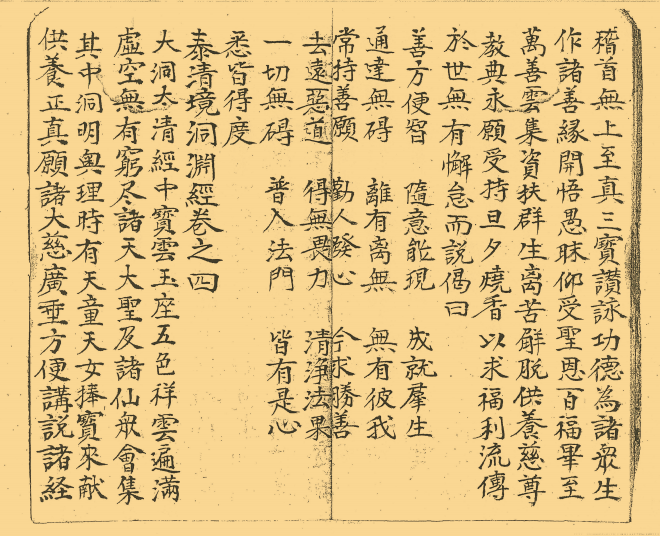 稽首無上至真三寳讃詠功德為諸衆生
作諸善縁開悟愚昧仰受聖恩百福畢至
萬善雲集資扶群生离苦觧脱供養慈尊
教典永願受持旦夕燒香以求福利流傳
於世無有懈怠而説偈曰
善方便智　隨意能現　成就羣生
通達無碍　離有离無　無有彼我
常持善願　勸人發心　今求勝善
去遠惡道　得無畏力　清浄法果
一切無碍　普入法門　皆有是心
悉皆得度
泰清境洞淵經卷之四
大洞太清經中寳雲玉座五色祥雲遍滿
虛空無有窮尽諸天大聖及諸仙衆會集
其中洞明奥理時有天童天女捧寳來献
供養正真願諸大慈廣垂方便講説諸経